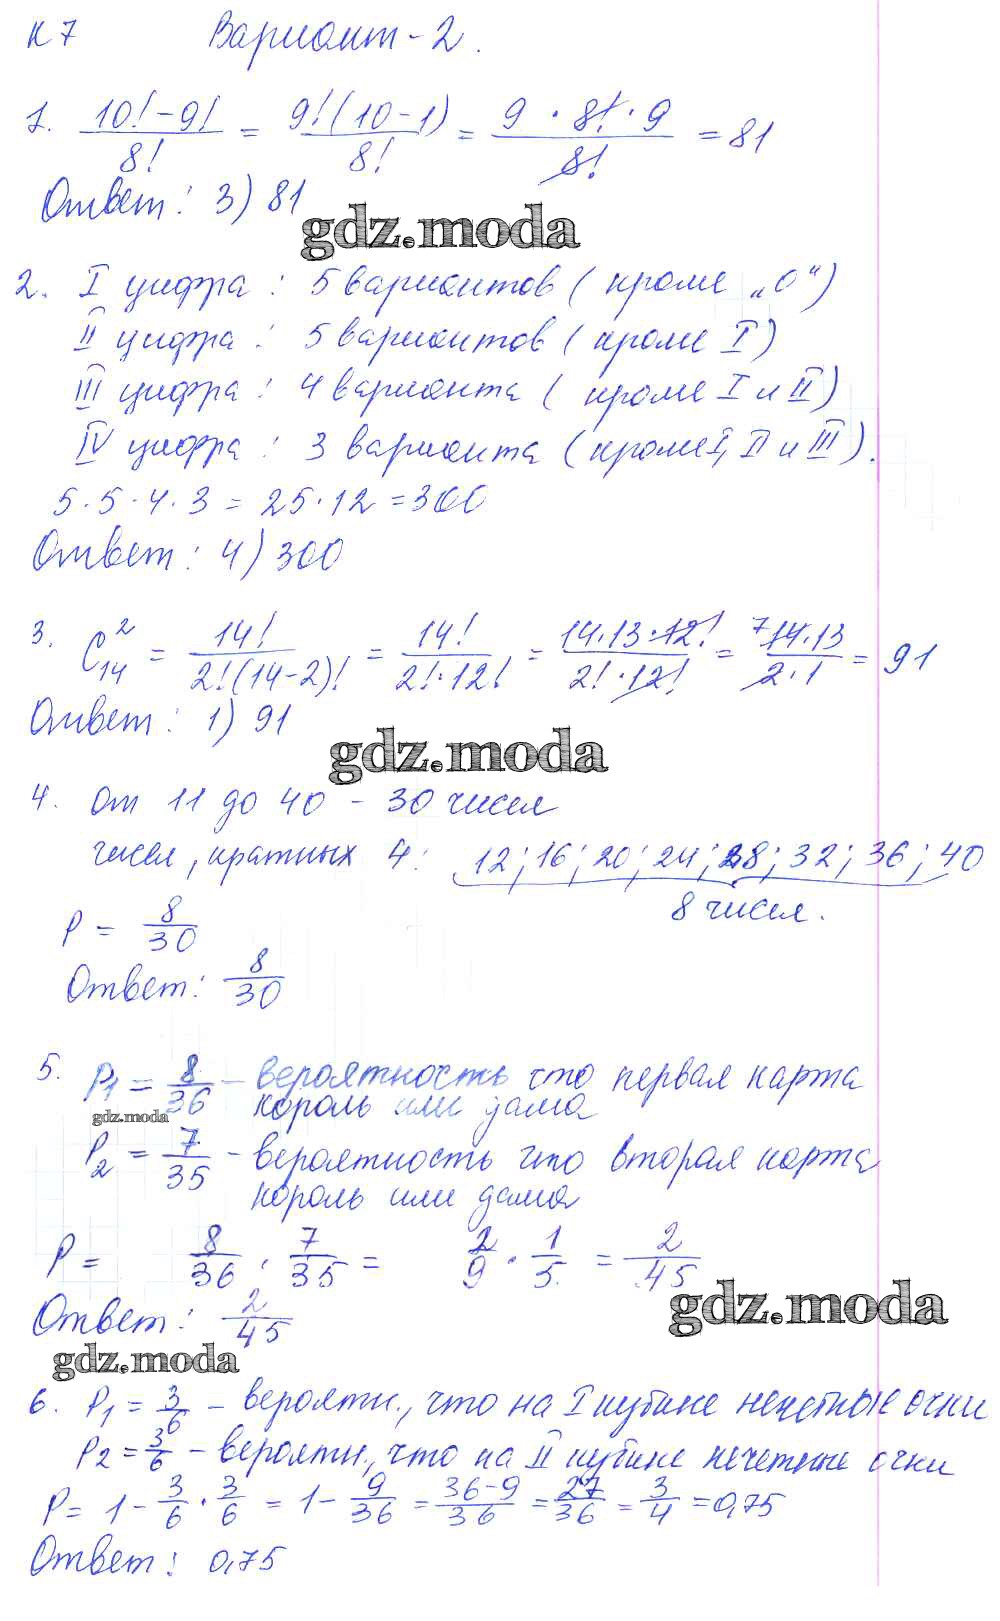 К 7 Вариант-2.
1. (10! - 9!)/8! = 9!(10-1)/8! = (9 · 8! · 9)/8! = 81
Ответ: 3) 81
gdz.moda
2. I цифра: 5 вариантов (кроме „0“)
II цифра: 5 вариантов (кроме I)
III цифра: 4 варианта (кроме I и II)
IV цифра: 3 варианта (кроме I, II и III).
5·5·4·3 = 25·12 = 300
Ответ: 4) 300
3. C₁₄² = 14!/(2!(14-2)!) = 14!/(2!·12!) = (14·13·12!)/(2!·12!) = 7 (14·13)/(2·1) = 91
Ответ: 1) 91
gdz.moda
4. от 11 до 40 - 30 чисел
чисел, кратных 4: 12; 16; 20; 24; 28; 32; 36; 40
8 чисел.
P = 8/30
Ответ: 8/30
5. P₁ = 8/36 - вероятность что первая карта
король или дама
gdz.moda
P₂ = 7/35 - вероятность что вторая карта
король или дама
P = 8/36 · 7/35 = 2/9 · 1/5 = 2/45
gdz.moda
Ответ: 2/45
gdz.moda
6. P₁ = 3/6 - вероятн., что на I кубике нечетные очки
P₂ = 3/6 - вероятн., что на II кубике нечетные очки
P = 1 - 3/6 · 3/6 = 1 - 9/36 = (36-9)/36 = 27/36 = 3/4 = 0,75
Ответ: 0,75